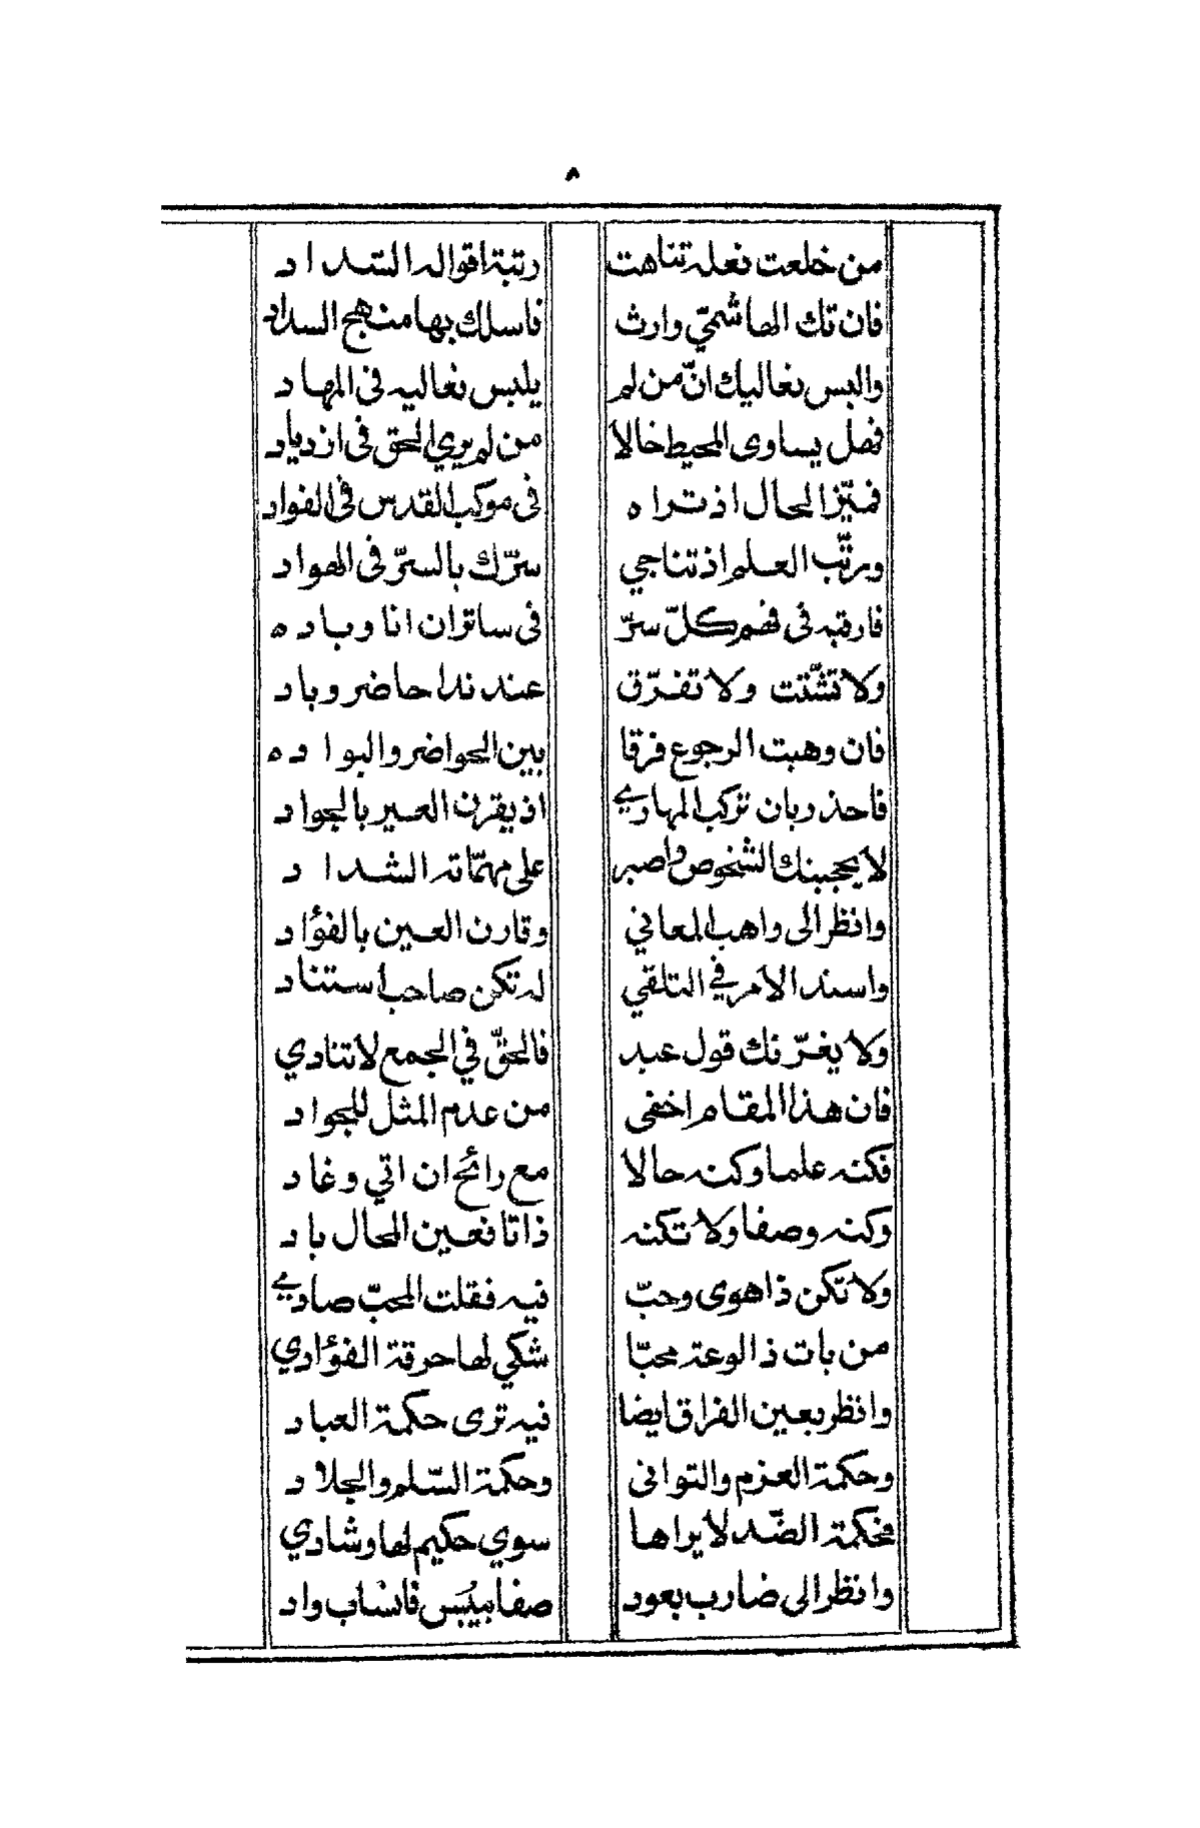 ٨
من خلعت نعله تناهت رتبة اقواله السداد
فان تك الهاشميّ وارث فاسلك بها منهج السداد
والبس نعاليك انّ من لم يلبس نعاليه فى المهاد
فهل يساوى المحيط خالا من لم يري الحق فى ازدياد
فميّز الحال اذ تراه فى موكب القدس فى الفواد
ورتّب العلم اذ تناجي سرّك بالسرّ فى الهواد
فارقبه فى فهم كلّ سرّ فى ساتران انا وباده
ولا تشتّت ولا تفرّق عند ندا حاضر وباد
فان وهبت الرجوع فرقا بين الحواضر والبواده
فاحذر بان تركب المهاري اذ يقرن العير بالجواد
لا يحجبنك الشخوص واصبر على مهمّاته الشداد
وانظر الى واهب المعاني وقارن العين بالفؤاد
واسند الأمر في التلقي له تكن صاحب أستناد
ولا يغرّنك قول عبد فالحقّ في الجمع لا تنادي
فان هذا المقام اخفى من عدم المثل للجواد
فكنه علما وكنه حالا مع رائح ان اتي وغاد
وكنه وصفا ولا تكنه ذاتا فعين المحال باد
ولا تكن ذا هوى وحبّ فيه فقلت المحبّ صادي
من بات ذا لوعة محبّا شكي لها حرقة الفؤادي
وانظر بعين الفراق ايضا فيه ترى حكمة العباد
وحكمة العزم والتوانى وحكمة السّلم والجلاد
فحكمة الضّد لا يراها سوي حكيم لها وشادي
وانظر الى ضارب بعود صفا بيبس فانساب واد